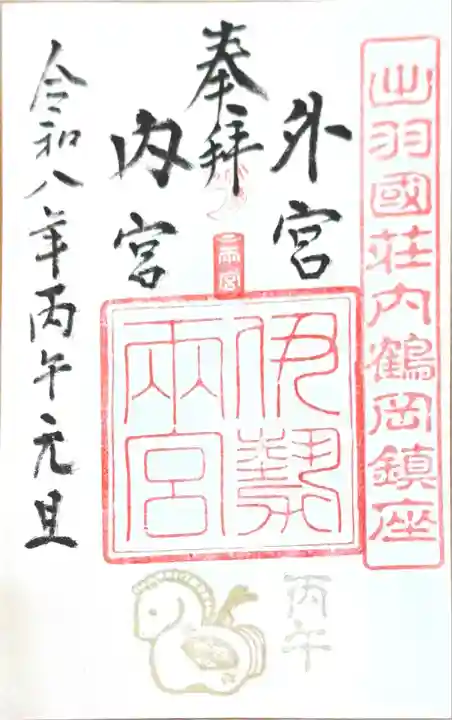 出羽國荘内鶴岡鎮座
外宮
奉拝
内宮
二両宮
伊勢
兩宮
令和八年丙午元旦
丙午